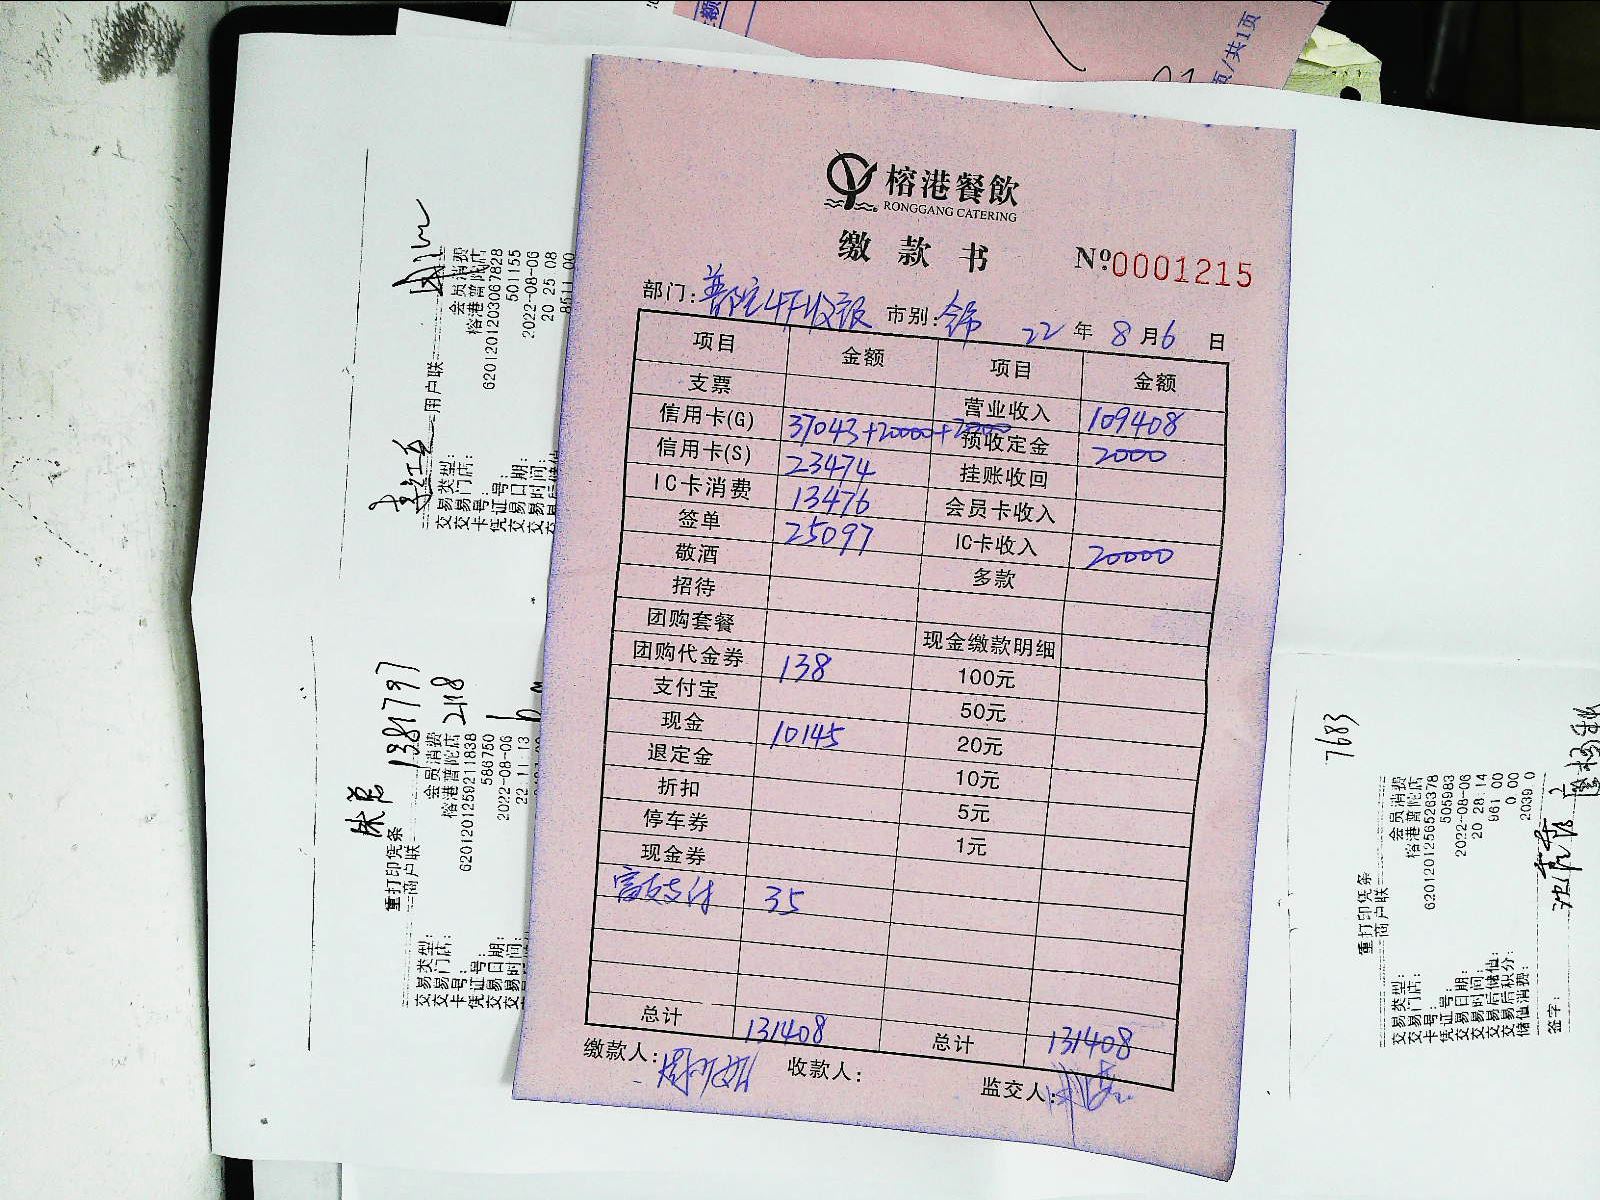 页/共1页
榕港餐飲
RONGGANG CATERING
缴款书
Nº0001215
部门: 普陀4F收银 市别: 22年8月6日
项目 金额 项目 金额
支票 营业收入 109408
信用卡(G) 37043+20000+2000 预收定金 2000
信用卡(S) 23474 挂账收回
IC卡消费 13476 会员卡收入
签单 25097 IC卡收入 20000
敬酒 多款
招待
团购套餐 现金缴款明细
团购代金券 138 100元
支付宝 50元
现金 10145 20元
退定金 10元
折扣 5元
停车券 1元
现金券
支付 35
总计 131408 总计 131408
缴款人: 收款人: 监交人:
用户联
交易类型: 会员消费
交易门店: 榕港普陀店
卡号: 6201201203067828
凭证号: 501155
交易日期: 2022-08-06
交易时间: 20 25 08
1381797
2118
重打印凭条
商户联
交易类型: 会员消费
交易门店: 榕港普陀店
卡号: 6201201259211838
凭证号: 586750
交易日期: 2022-08-06
交易时间: 22 11 13
7683
重打印凭条
商户联
交易类型: 会员消费
交易门店: 榕港普陀店
卡号: 6201201256526378
凭证号: 505983
交易日期: 2022-08-06
交易时间: 20 28 14
交易后储值: 961 00
交易后积分: 0 00
储值消费: 2039 0
签字: